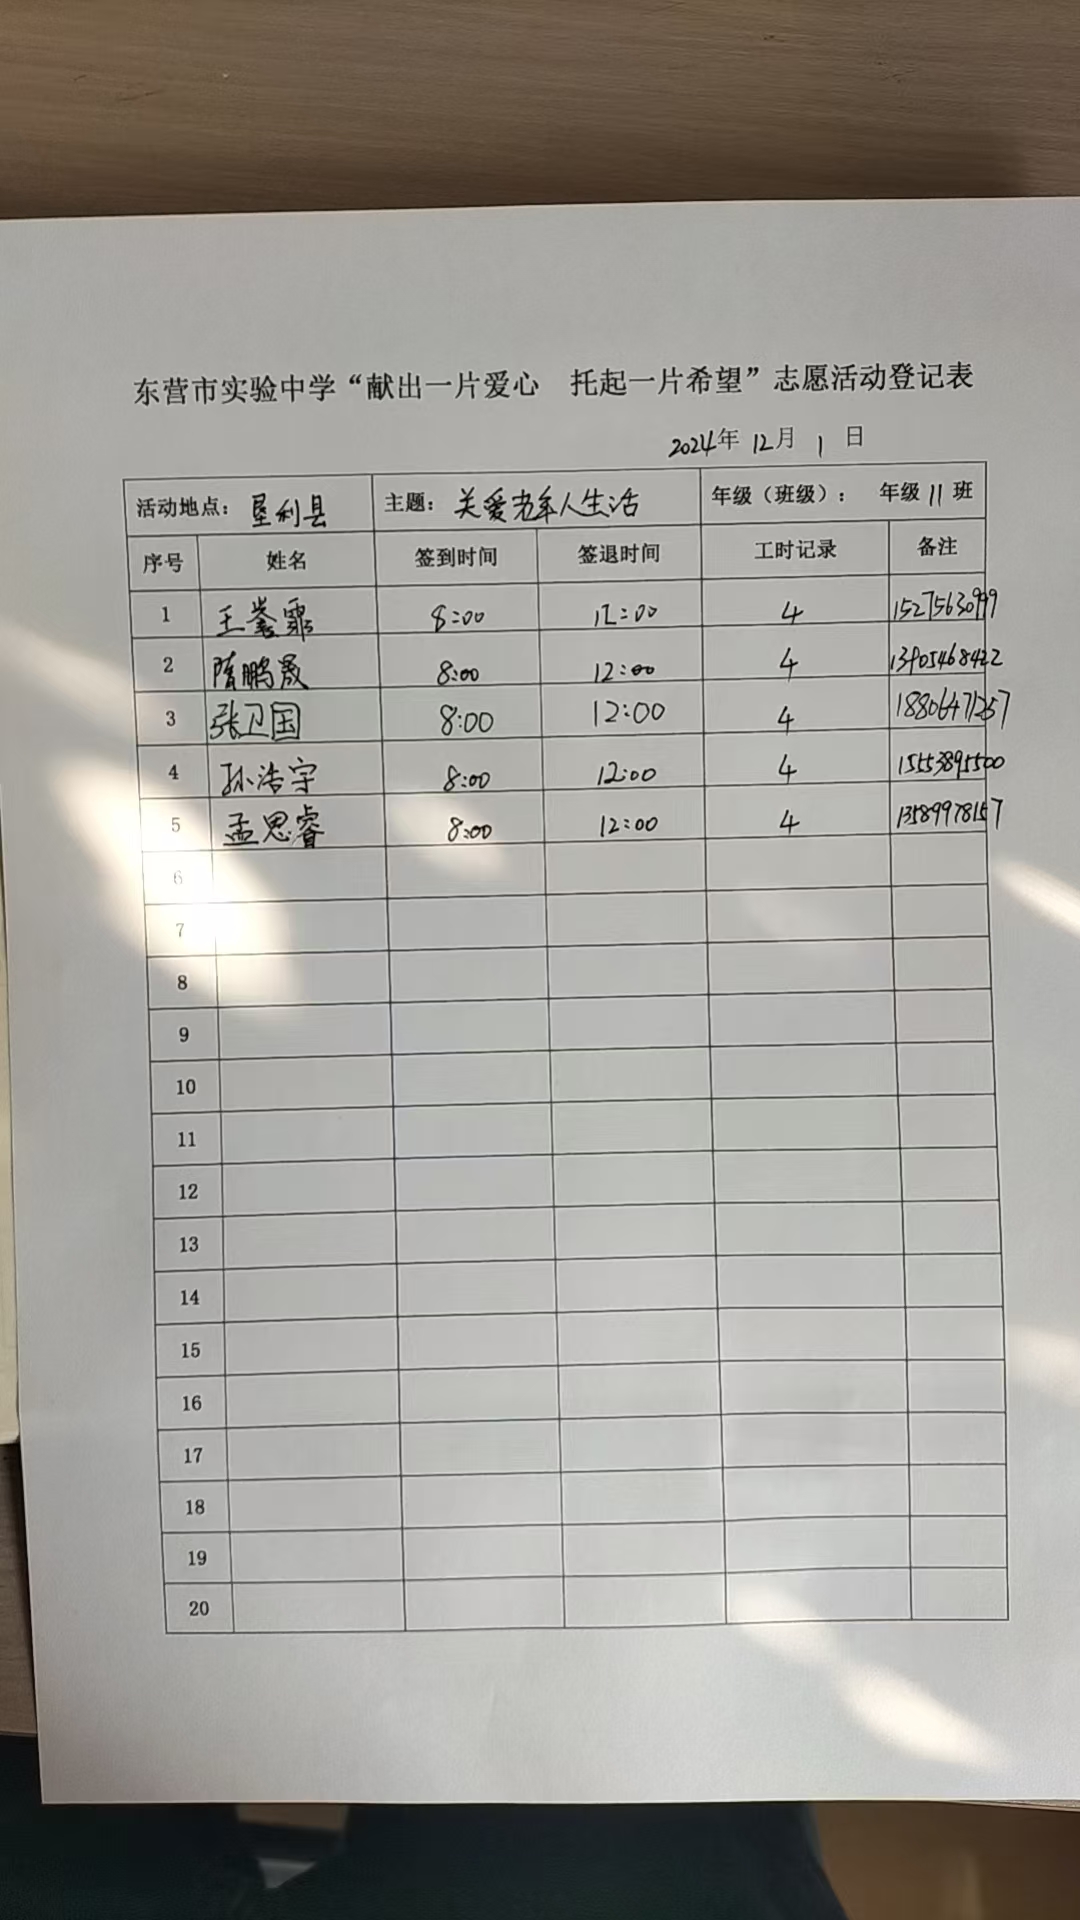 东营市实验中学“献出一片爱心 托起一片希望”志愿活动登记表
2024年 12月 1 日
活动地点：垦利县 主题：关爱老年人生活 年级（班级）： 年级11班
序号 姓名 签到时间 签退时间 工时记录 备注
1 王 8:00 12:00 4
2 隋鹏晟 8:00 12:00 4
3 张卫国 8:00 12:00 4 18806471257
4 孙浩宇 8:00 12:00 4 15553895500
5 孟思睿 8:00 12:00 4 13589978157
6
7
8
9
10
11
12
13
14
15
16
17
18
19
20